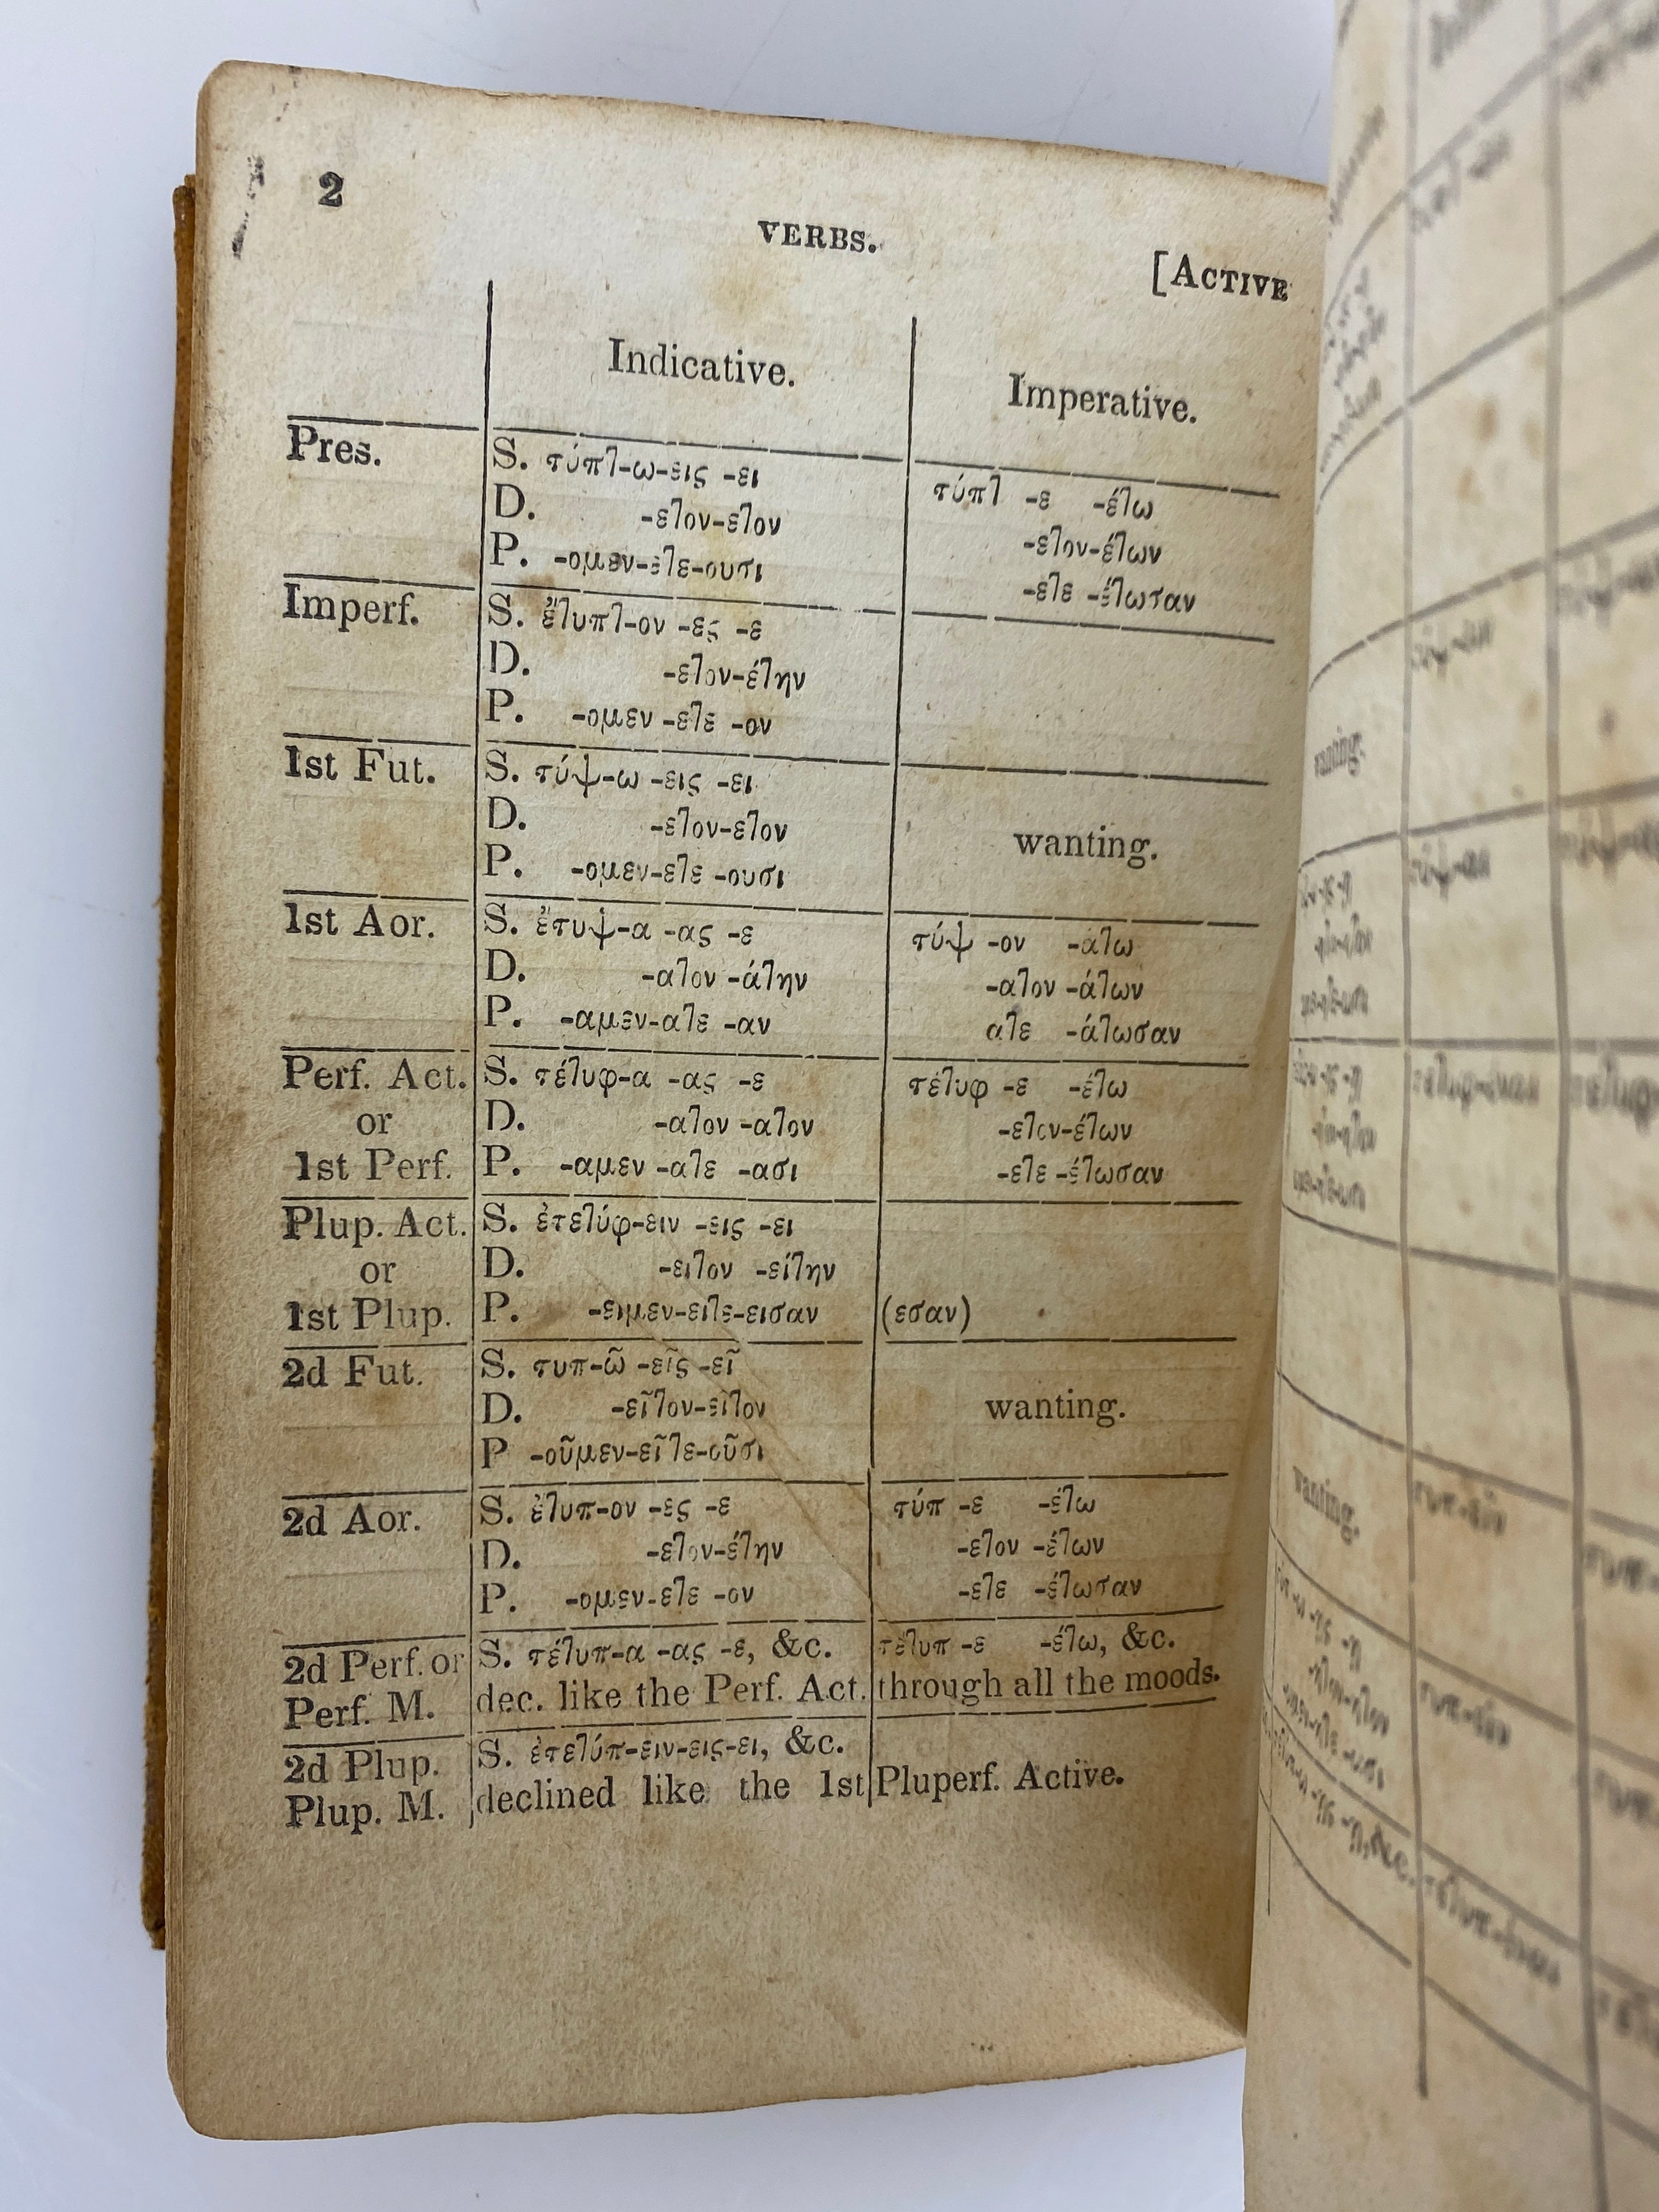 2
VERBS.
[ACTIVE
Indicative.
Imperative.
Pres.
S. τύπτ-ω-εις -ει
D. -ετον-ετον
P. -ομεν-ετε-ουσι
τύπτ -ε -έτω
-ετον-έτων
-ετε -έτωσαν
Imperf.
S. ἔτυπτ-ον -ες -ε
D. -ετον-έτην
P. -ομεν -ετε -ον
1st Fut.
S. τύψ-ω -εις -ει
D. -ετον-ετον
P. -ομεν-ετε -ουσι
wanting.
1st Aor.
S. ἔτυψ-α -ας -ε
D. -ατον -άτην
P. -αμεν-ατε -αν
τύψ -ον -άτω
-ατον -άτων
ατε -άτωσαν
Perf. Act.
or
1st Perf.
S. τέτυφ-α -ας -ε
D. -ατον -ατον
P. -αμεν -ατε -ασι
τέτυφ -ε -έτω
-ετον-έτων
-ετε -έτωσαν
Plup. Act.
or
1st Plup.
S. ἐτετύφ-ειν -εις -ει
D. -ειτον -είτην
P. -ειμεν-ειτε-εισαν (εσαν)
2d Fut.
S. τυπ-ῶ -εῖς -εῖ
D. -εῖτον-εῖτον
P -οῦμεν-εῖτε-οῦσι
wanting.
2d Aor.
S. ἔτυπ-ον -ες -ε
D. -ετον-έτην
P. -ομεν-ετε -ον
τύπ -ε -έτω
-ετον -έτων
-ετε -έτωσαν
2d Perf. or
Perf. M.
S. τέτυπ-α -ας -ε, &c. τέτυπ -ε -έτω, &c.
dec. like the Perf. Act. through all the moods.
2d Plup.
Plup. M.
S. ἐτετύπ-ειν-εις-ει, &c.
declined like the 1st Pluperf. Active.
wanting.